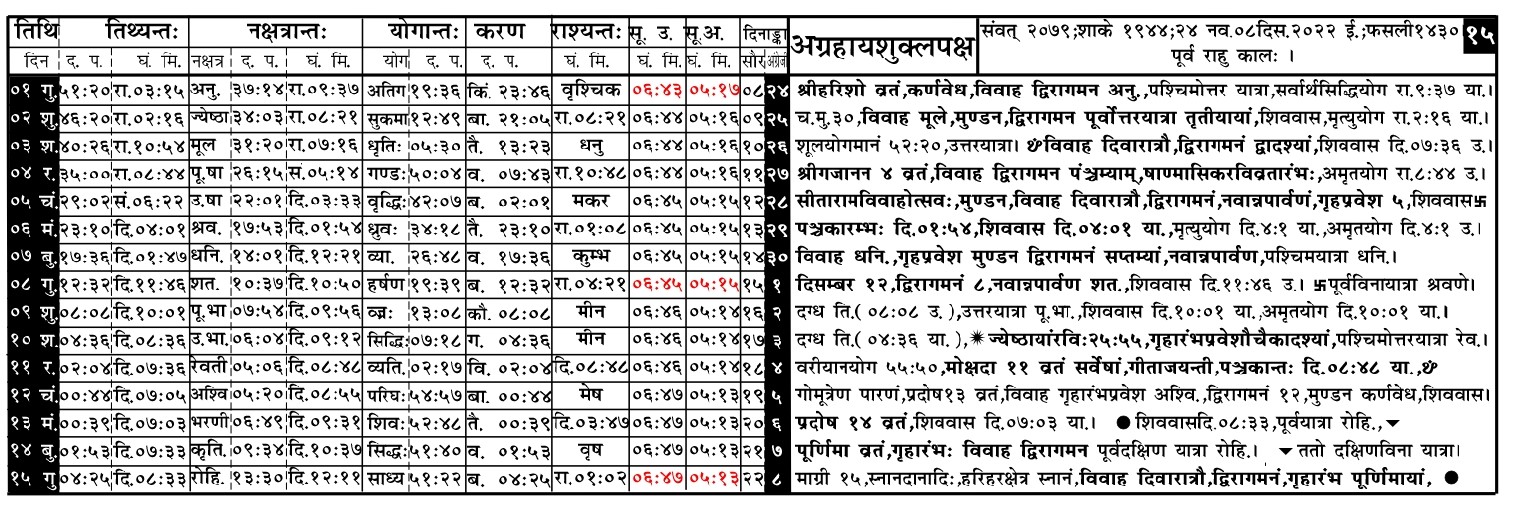 तिथि तिथ्यन्तः नक्षत्रान्तः योगान्तः करण राश्यन्तः सू. उ. सू.अ. दिनाङ्का अग्रहायशुक्लपक्ष संवत् २०७९;शाके १९४४;२४ नव.०८दिस.२०२२ ई.;फसली१४३० १५
दिन द. प. घं. मि. नक्षत्र द. प. घं. मि. योग द. प. द. प. घं. मि. घं. मि. घं. मि. सौर अंग्रेजी पूर्व राहु कालः ।
०१ गु. ५१:२० रा.०३:१५ अनु. ३७:१४ रा.०९:३७ अतिग १९:३६ किं. २३:४६ वृश्चिक ०६:४३ ०५:१७ ०८ २४ श्रीहरिशो व्रतं,कर्णवेध,विवाह द्विरागमन अनु.,पश्चिमोत्तर यात्रा,सर्वार्थसिद्धियोग रा.९:३७ या.।
०२ शु. ४६:२० रा.०२:१६ ज्येष्ठा ३४:०३ रा.०८:२१ सुकमा १२:४९ बा. २१:०५ रा.०८:२१ ०६:४४ ०५:१६ ०९ २५ च.मु.३०,विवाह मूले,मुण्डन,द्विरागमन पूर्वोत्तरयात्रा तृतीयायां,शिववास,मृत्युयोग रा.२:१६ या.।
०३ श. ४०:२६ रा.१०:५४ मूल ३१:२० रा.०७:१६ धृतिः ०५:३० तै. १३:२३ धनु ०६:४४ ०५:१६ १० २६ शूलयोगमानं ५२:२०,उत्तरयात्रा। विवाह दिवारात्रौ,द्विरागमनं द्वादश्यां,शिववास दि.०७:३६ उ.।
०४ र. ३५:०० रा.०८:४४ पू.षा २६:१५ सं.०५:१४ गण्डः ५०:०४ व. ०७:४३ रा.१०:४८ ०६:४४ ०५:१६ ११ २७ श्रीगजानन ४ व्रतं,विवाह द्विरागमन पंञ्चम्याम्,षाण्मासिकरविव्रतारंभः,अमृतयोग रा.८:४४ उ.।
०५ चं. २९:०२ सं.०६:२२ उ.षा २२:०१ दि.०३:३३ वृद्धिः ४२:०७ ब. ०२:०१ मकर ०६:४५ ०५:१५ १२ २८ सीतारामविवाहोत्सवः,मुण्डन,विवाह दिवारात्रौ,द्विरागमनं,नवान्नपार्वणं,गृहप्रवेश ५,शिववास卐
०६ मं. २३:१० दि.०४:०१ श्रव. १७:५३ दि.०१:५४ धुवः ३४:१८ तै. २३:१० रा.०१:०८ ०६:४५ ०५:१५ १३ २९ पञ्चकारम्भः दि.०१:५४,शिववास दि.०४:०१ या.,मृत्युयोग दि.४:१ या.,अमृतयोग दि.४:१ उ.।
०७ बु. १७:३६ दि.०१:४७ धनि. १४:०१ दि.१२:२१ व्या. २६:४८ व. १७:३६ कुम्भ ०६:४५ ०५:१५ १४ ३० विवाह धनि.,गृहप्रवेश मुण्डन द्विरागमनं सप्तम्यां,नवान्नपार्वण,पश्चिमयात्रा धनि.।
०८ गु. १२:३२ दि.११:४६ शत. १०:३७ दि.१०:५० हर्षण १९:३९ ब. १२:३२ रा.०४:२१ ०६:४५ ०५:१५ १५ १ दिसम्बर १२,द्विरागमनं ८,नवान्नपार्वण शत.,शिववास दि.११:४६ उ.। 卐पूर्वविनायात्रा श्रवणे।
०९ शु. ०८:०८ दि.१०:०१ पू.भा ०७:५४ दि.०९:५६ व्व्रः १३:०८ कौ. ०८:०८ मीन ०६:४६ ०५:१४ १६ २ दग्ध ति.( ०८:०८ उ.),उत्तरयात्रा पू.भा.,शिववास दि.१०:०१ या.,अमृतयोग दि.१०:०१ या.।
१० श. ०४:३६ दि.०८:३६ उ.भा. ०६:०४ दि.०९:१२ सिद्धिः ०७:१८ ग. ०४:३६ मीन ०६:४६ ०५:१४ १७ ३ दग्ध ति.( ०४:३६ या.),✷ज्येष्ठायांरविः२५:५५,गृहारंभप्रवेशौचैकादश्यां,पश्चिमोत्तरयात्रा रेव.।
११ र. ०२:०४ दि.०७:३६ रेवती ०५:०६ दि.०८:४८ व्यति. ०२:१७ वि. ०२:०४ दि.०८:४८ ०६:४६ ०५:१४ १८ ४ वरीयानयोग ५५:५०,मोक्षदा ११ व्रतं सर्वेषां,गीताजयन्ती,पञ्चकान्तः दि.०८:४८ या.,
१२ चं. ००:४४ दि.०७:०५ अश्वि. ०५:२० दि.०८:५५ परिघः ५४:५७ बा. ००:४४ मेष ०६:४७ ०५:१३ १९ ५ गोमूत्रेण पारणं,प्रदोष१३ व्रतं,विवाह गृहारंभप्रवेश अश्वि.,द्विरागमनं १२,मुण्डन कर्णवेध,शिववास।
१३ मं. ००:३९ दि.०७:०३ भरणी ०६:४९ दि.०९:३१ शिवः ५२:४८ तै. ००:३९ दि.०३:४७ ०६:४७ ०५:१३ २० ६ प्रदोष १४ व्रतं,शिववास दि.०७:०३ या.। ●शिववासदि.०८:३३,पूर्वयात्रा रोहि.,▾
१४ बु. ०१:५३ दि.०७:३३ कृति. ०९:३४ दि.१०:३७ सिद्धः ५१:४० व. ०१:५३ वृष ०६:४७ ०५:१३ २१ ७ पूर्णिमा व्रतं,गृहारंभः विवाह द्विरागमन पूर्वदक्षिण यात्रा रोहि.। ▾ततो दक्षिणविना यात्रा।
१५ गु ०४:२५ दि.०८:३३ रोहि. १३:३० दि.१२:११ साध्य ५१:२२ ब. ०४:२५ रा.०१:०२ ०६:४७ ०५:१३ २२ ८ माग्री १५,स्नानदानादिः,हरिहरक्षेत्र स्नानं,विवाह दिवारात्रौ,द्विरागमनं,गृहारंभ पूर्णिमायां, ●